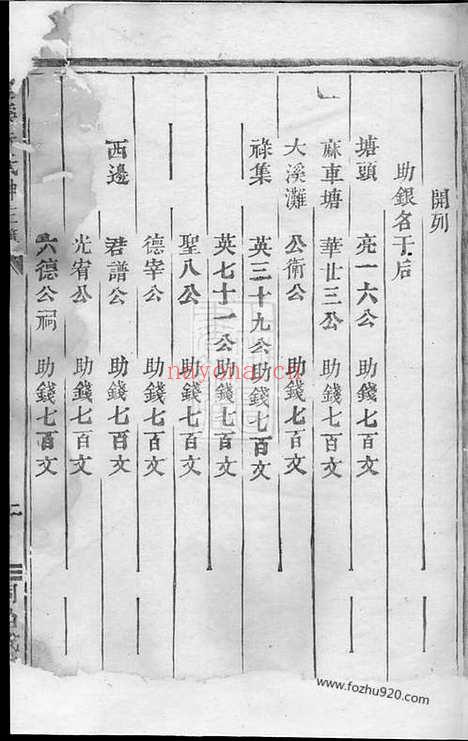 開列
助銀名于后
塘頭 亮一六公 助錢七百文
麻車塘 華廿三公 助錢七百文
大溪灘 公衛公 助錢七百文
祿集 英三十九公助錢七百文
英七十一公助錢七百文
聖八公 助錢七百文
德宰公 助錢七百文
西邊 君譜公 助錢七百文
光宥公 助錢七百文
六德公祠 助錢七百文
nayona.cn
www.fozhu920.com